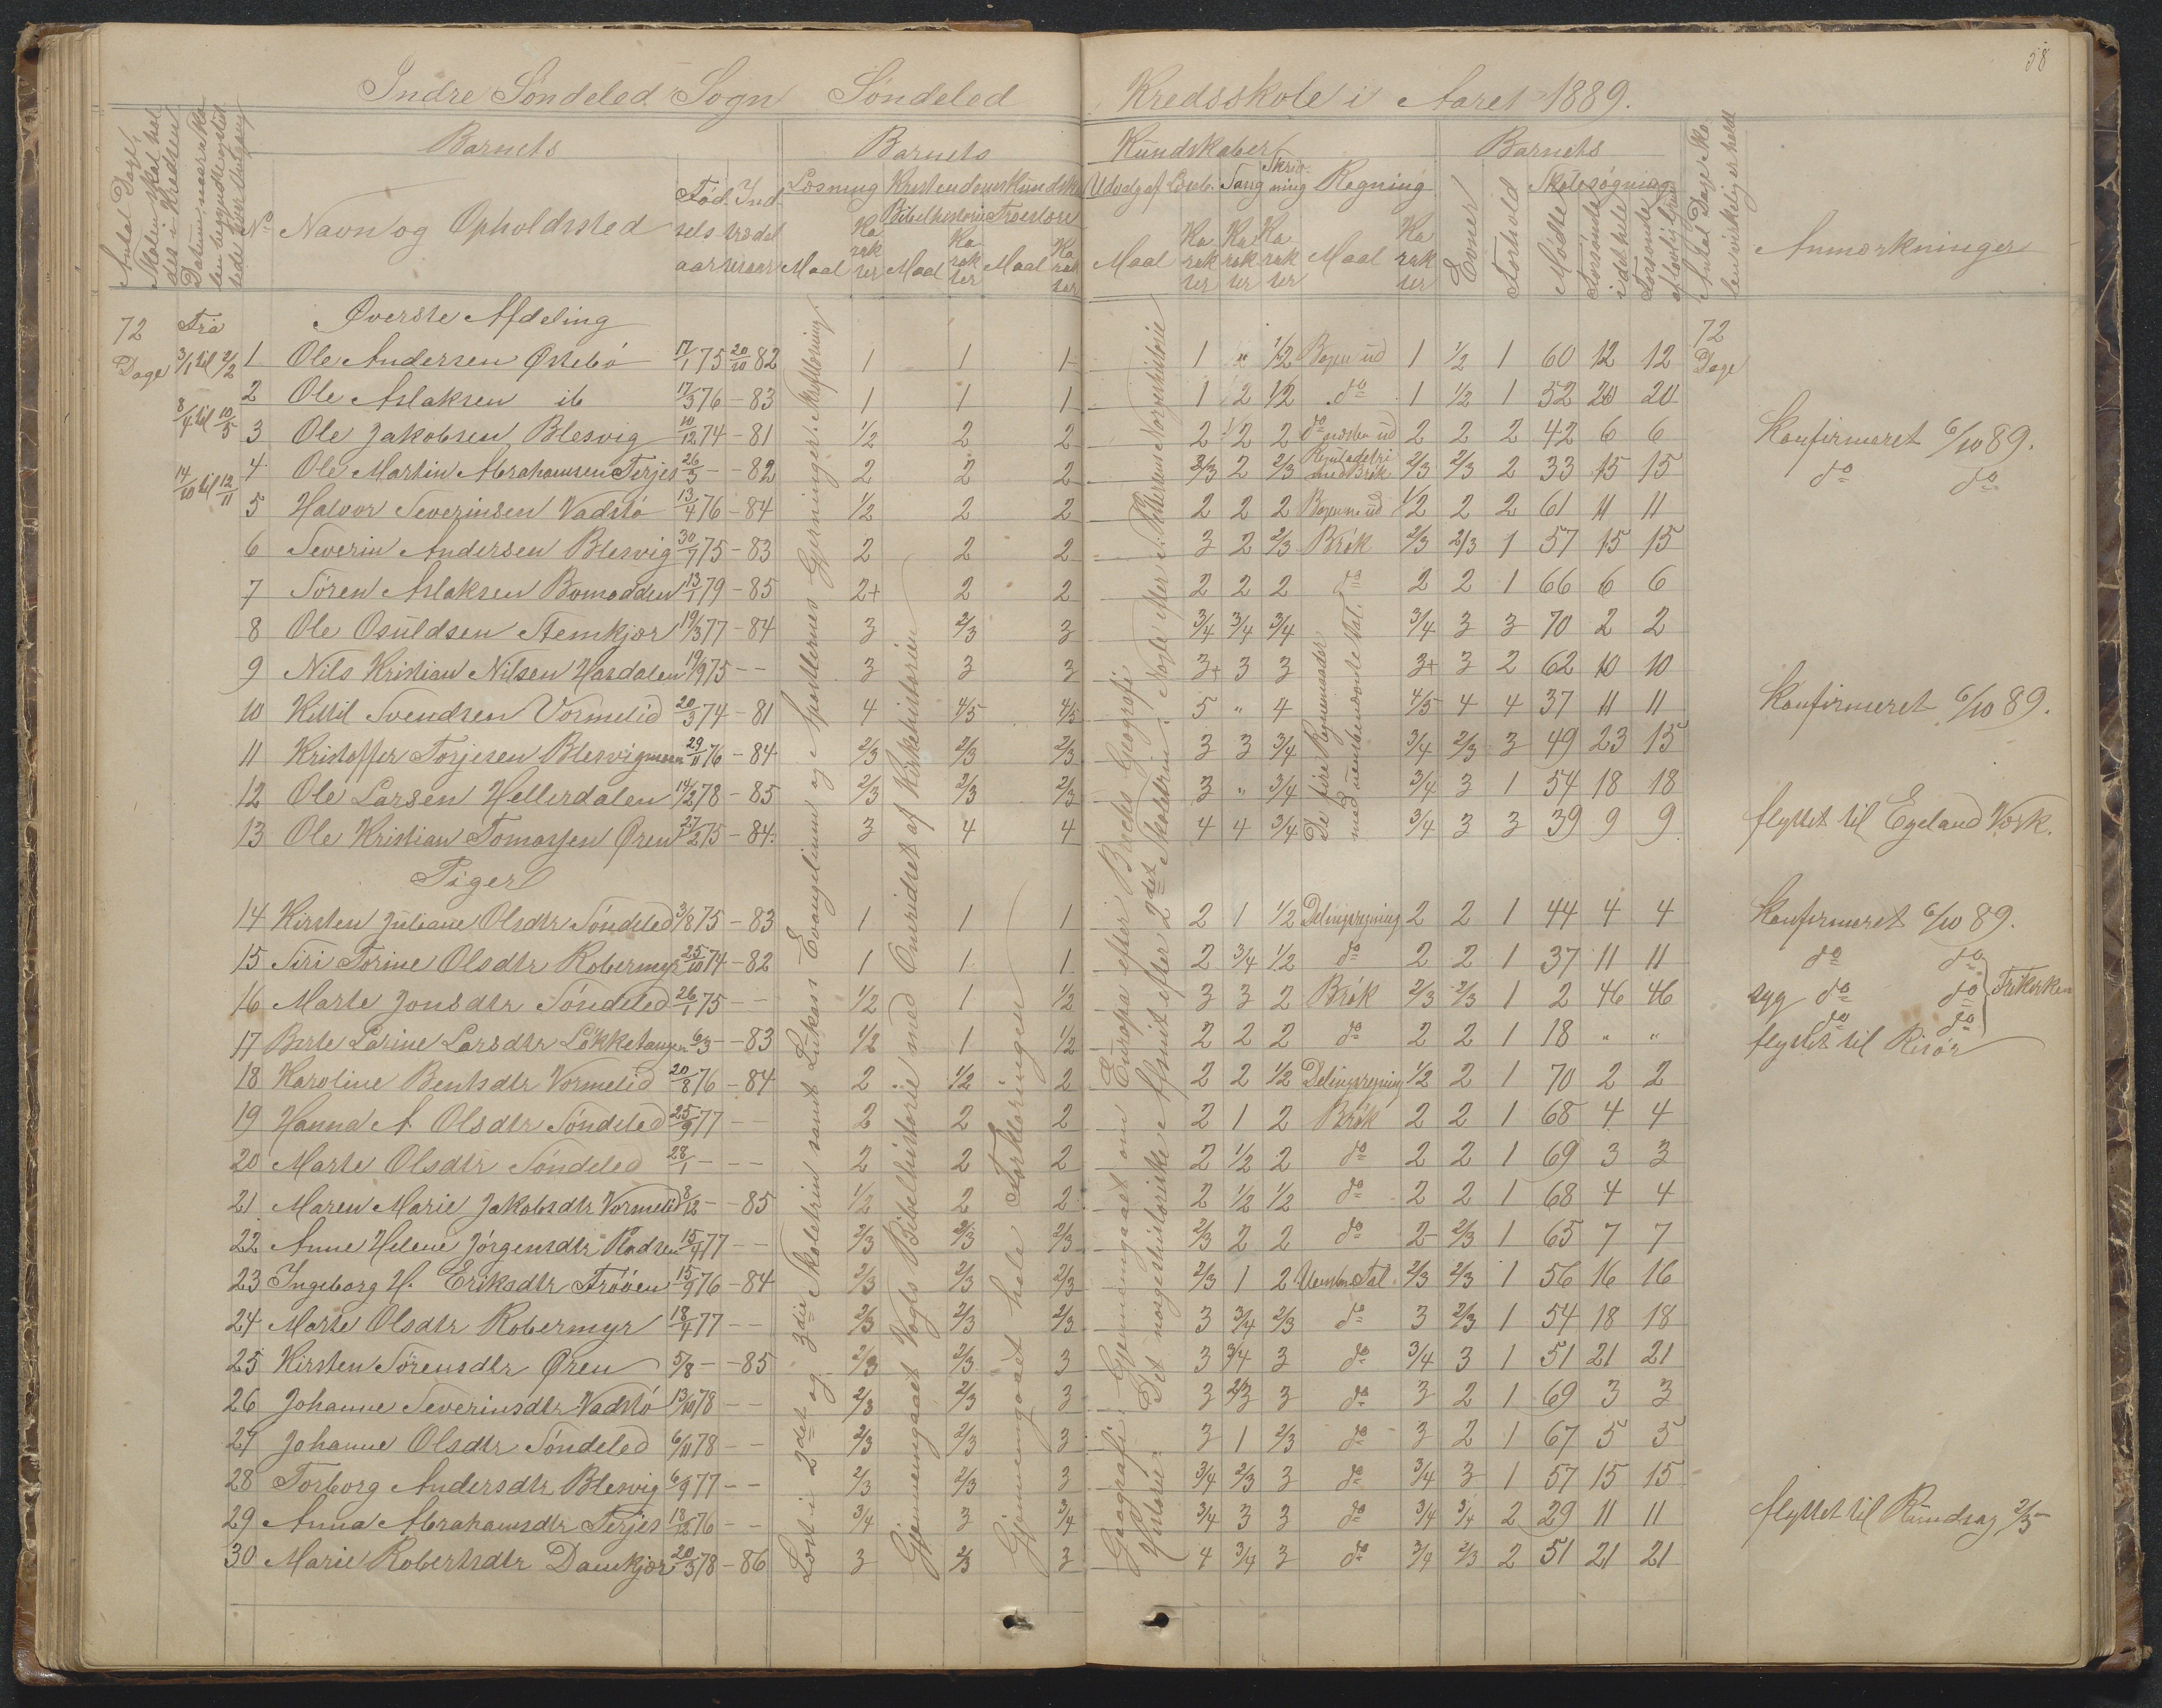 58
Indre Söndeled Sogn Söndeled Kredsskole i Aaret 1889.
Antal Dage, Skolen skal holdes i Kredsen
No
Barnets
Navn og Opholdssted
Födselsaar
Barnets Kundskaber
Læsning Kristendomskundskab Udvalg af Læseb. Sang Skrivning Regning
Bibelhistorie Troeslære
Maal Karakter Maal Karakter Maal Karakter Maal Karakter Karakter Karakter Maal Karakter
Barnets
Evner Forhold Skolesøgning
Mødte Forsømte i det hele Forsømte af lovlig Grund
Antal Dage Skolen virkelig er holdt
Anmærkninger
72 Dage
Fra 3/1 til 2/2
8/4 til 10/5
14/10 til 12/11
72 Dage
Øverste Afdeling
1 Ole Andersen Østebö 17/1 75 20/10 82 1 1 1 1 " 1/2 1 1/2 1 60 12 12
2 Ole Aslaksen ib 17/3 76 - 83 1 1 1 1 2 1/2 do 1 1/2 1 52 20 20
3 Ole Jakobsen Blesvig 10/12 74 - 81 1/2 2 2 2 1/2 2 do 2 2 2 42 6 6 Konfirmeret 6/10 89.
4 Ole Martin Abrahamsen Terjes 26/3 - - 82 2 2 2 2/3 2 2/3 med Brøk 2/3 2/3 2 33 15 15 do do
5 Halvor Severinsen Vadstö 13/4 76 - 84 1/2 2 2 2 2 2 1/2 2 2 61 11 11
6 Severin Andersen Blesvig 30/7 75 - 83 2 2 2 3 2 2/3 Brök 2/3 2/3 1 57 15 15
7 Sören Aslaksen Bomodden 13/1 79 - 85 2+ 2 2 2 2 2 do 2 2 1 66 6 6
8 Ole Osuldsen Stemkjær 19/3 77 - 84 3 2/3 3 3/4 3/4 3/4 3/4 3 3 70 2 2
9 Nils Kristian Nilsen Hasdalen 19/9 75 - - 3 3 3 3+ 3 3 3+ 3 2 62 10 10
10 Kittil Svendsen Vormelid 20/3 74 - 81 4 4/5 4/5 5 " 4 4/5 4 4 37 11 11 Konfirmeret 6/10 89.
11 Kristoffer Torjesen Blesvigmoen 29/11 76 - 84 2/3 2/3 2/3 3 3 3/4 3/4 2/3 3 49 23 15
12 Ole Larsen Hellerdalen 14/2 78 - 85 2/3 2/3 2/3 3 " 3/4 3/4 3 1 54 18 18
13 Ole Kristian Tomassen Øren 27/2 75 - 84. 3 4 4 4 4 3/4 3/4 3 3 39 9 9 flyttet til Egeland Værk.
De fire Regnemaader med uensbenævnte Tal.
Piger
14 Kirsten Juliane Olsdtr Söndeled 3/8 75 - 83 1 1 1 2 1 1/2 Delingsregning 2 2 1 44 4 4 Konfirmeret 6/10 89.
15 Siri Torine Olsdtr Robermyr 25/10 74 - 82 1 1 1 2 3/4 1/2 do 2 2 1 37 11 11 do do
16 Marte Jonsdtr Söndeled 26/1 75 - - 1/2 1 1/2 3 3 2 Brök 2/3 2/3 1 2 46 46 syg do do
17 Berte Larine Larsdtr Lökketangen 6/3 - - 83 1/2 1 1/2 2 2 2 do 2 2 1 18 " " do do flyttet til Risör
18 Karoline Bentsdtr Vormelid 20/8 76 - 84 2 1/2 2 2 2 1/2 Delingsregning 1/2 2 1 70 2 2
19 Hanna A Olsdtr Söndeled 25/9 77 - - 2 2 2 2 1 2 Brök 2 2 1 68 4 4
20 Marte Olsdtr Söndeled 28/1 - - - 2 2 2 2 1/2 2 do 2 2 1 69 3 3
21 Maren Marie Jakobsdtr Vormelid 8/12 - - 85 1/2 2 2 2 1/2 1/2 do 2 2 1 68 4 4
22 Anne Helene Jörgensdtr 15/7 77 - - 2/3 2/3 2/3 2/3 2 2 do 2 2/3 1 65 7 7
23 Ingeborg H. Eriksdtr Trööen 15/9 76 - 84 2/3 2/3 2/3 2/3 1 2 Uensbn Tal 2/3 2/3 1 56 16 16
24 Marte Olsdtr Robermyr 18/4 77 - - 2/3 2/3 2/3 3 3/4 2/3 do 3 2/3 1 54 18 18
25 Kirsten Sörensdtr Øren 5/8 - - 85 2/3 2/3 3 3 3/4 3 do 3/4 3 1 51 21 21
26 Johanne Severinsdtr Vadstö 13/10 78 - - 2/3 2/3 3 3 2/3 3 do 3 2 1 69 3 3
27 Johanne Olsdtr Söndeled 6/11 78 - - 2/3 2/3 3 3 1 2/3 do 3 2 1 67 5 5
28 Torborg Andersdtr Blesvig 6/9 77 - - 2/3 2/3 3 3/4 2/3 3 do 3/4 3 1 57 15 15
29 Anna Abrahamsdtr Terjes 18/12 76 - - 3/4 3 3/4 3/4 3 3 do 3/4 3/4 2 29 11 11 flyttet til Rundsag 2/5
30 Marie Robertsdtr Damkjær 20/3 78 - 86 3 2/3 3 4 3/4 3 do 3/4 2/3 2 51 21 21
Læst i 2det og 3die Skoletrin samt Lukas Evangelium og Apostlernes Gjerninger.
Gjennemgaaet Vogts Bibelhistorie med Omridset af Kirkehistorien
Gjennemgaaet hele Forklaringen
Geografi: Gjennemgaaet om Europa efter Geografi
Historie: Det norgeshistoriske Afsnit efter 2det Skoletrin. Nogle efter Norgeshistorie